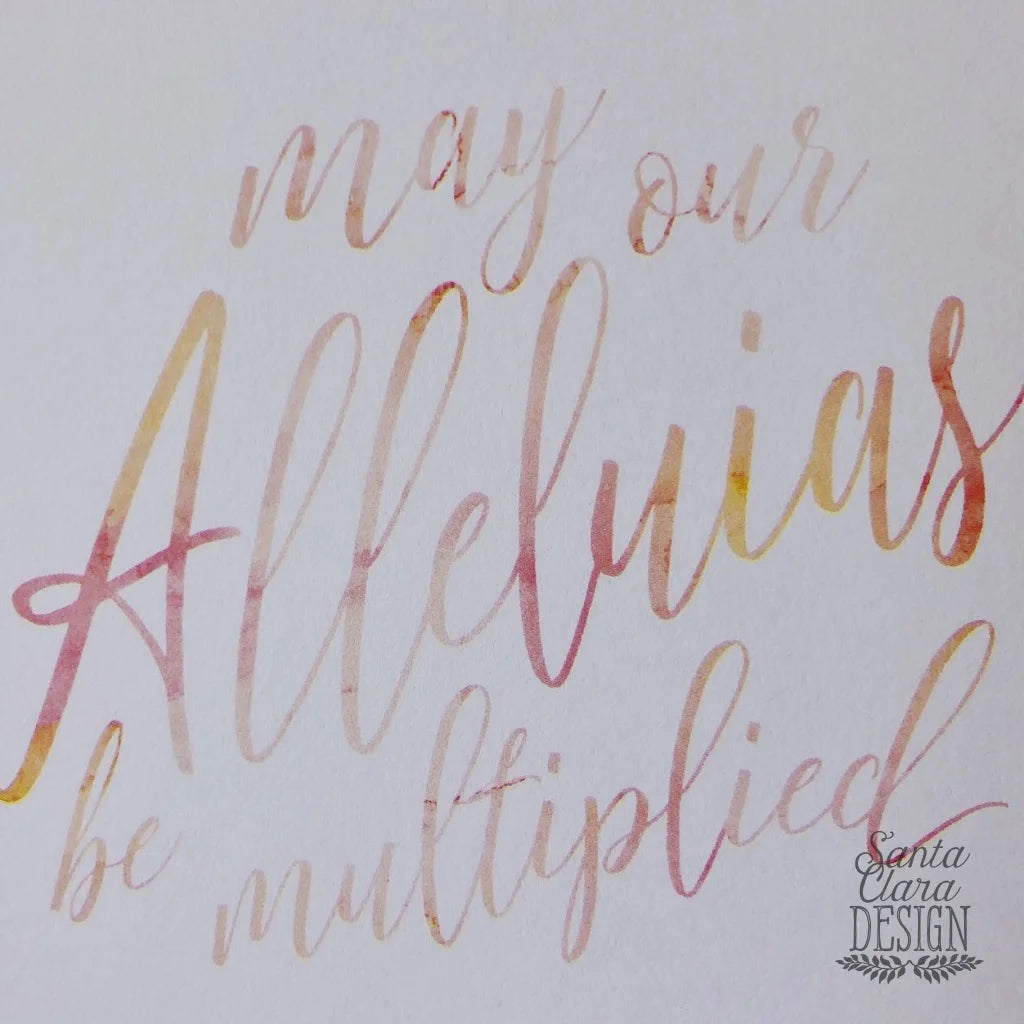 may our
Alleluias
be multiplied
Santa
Clara
DESIGN